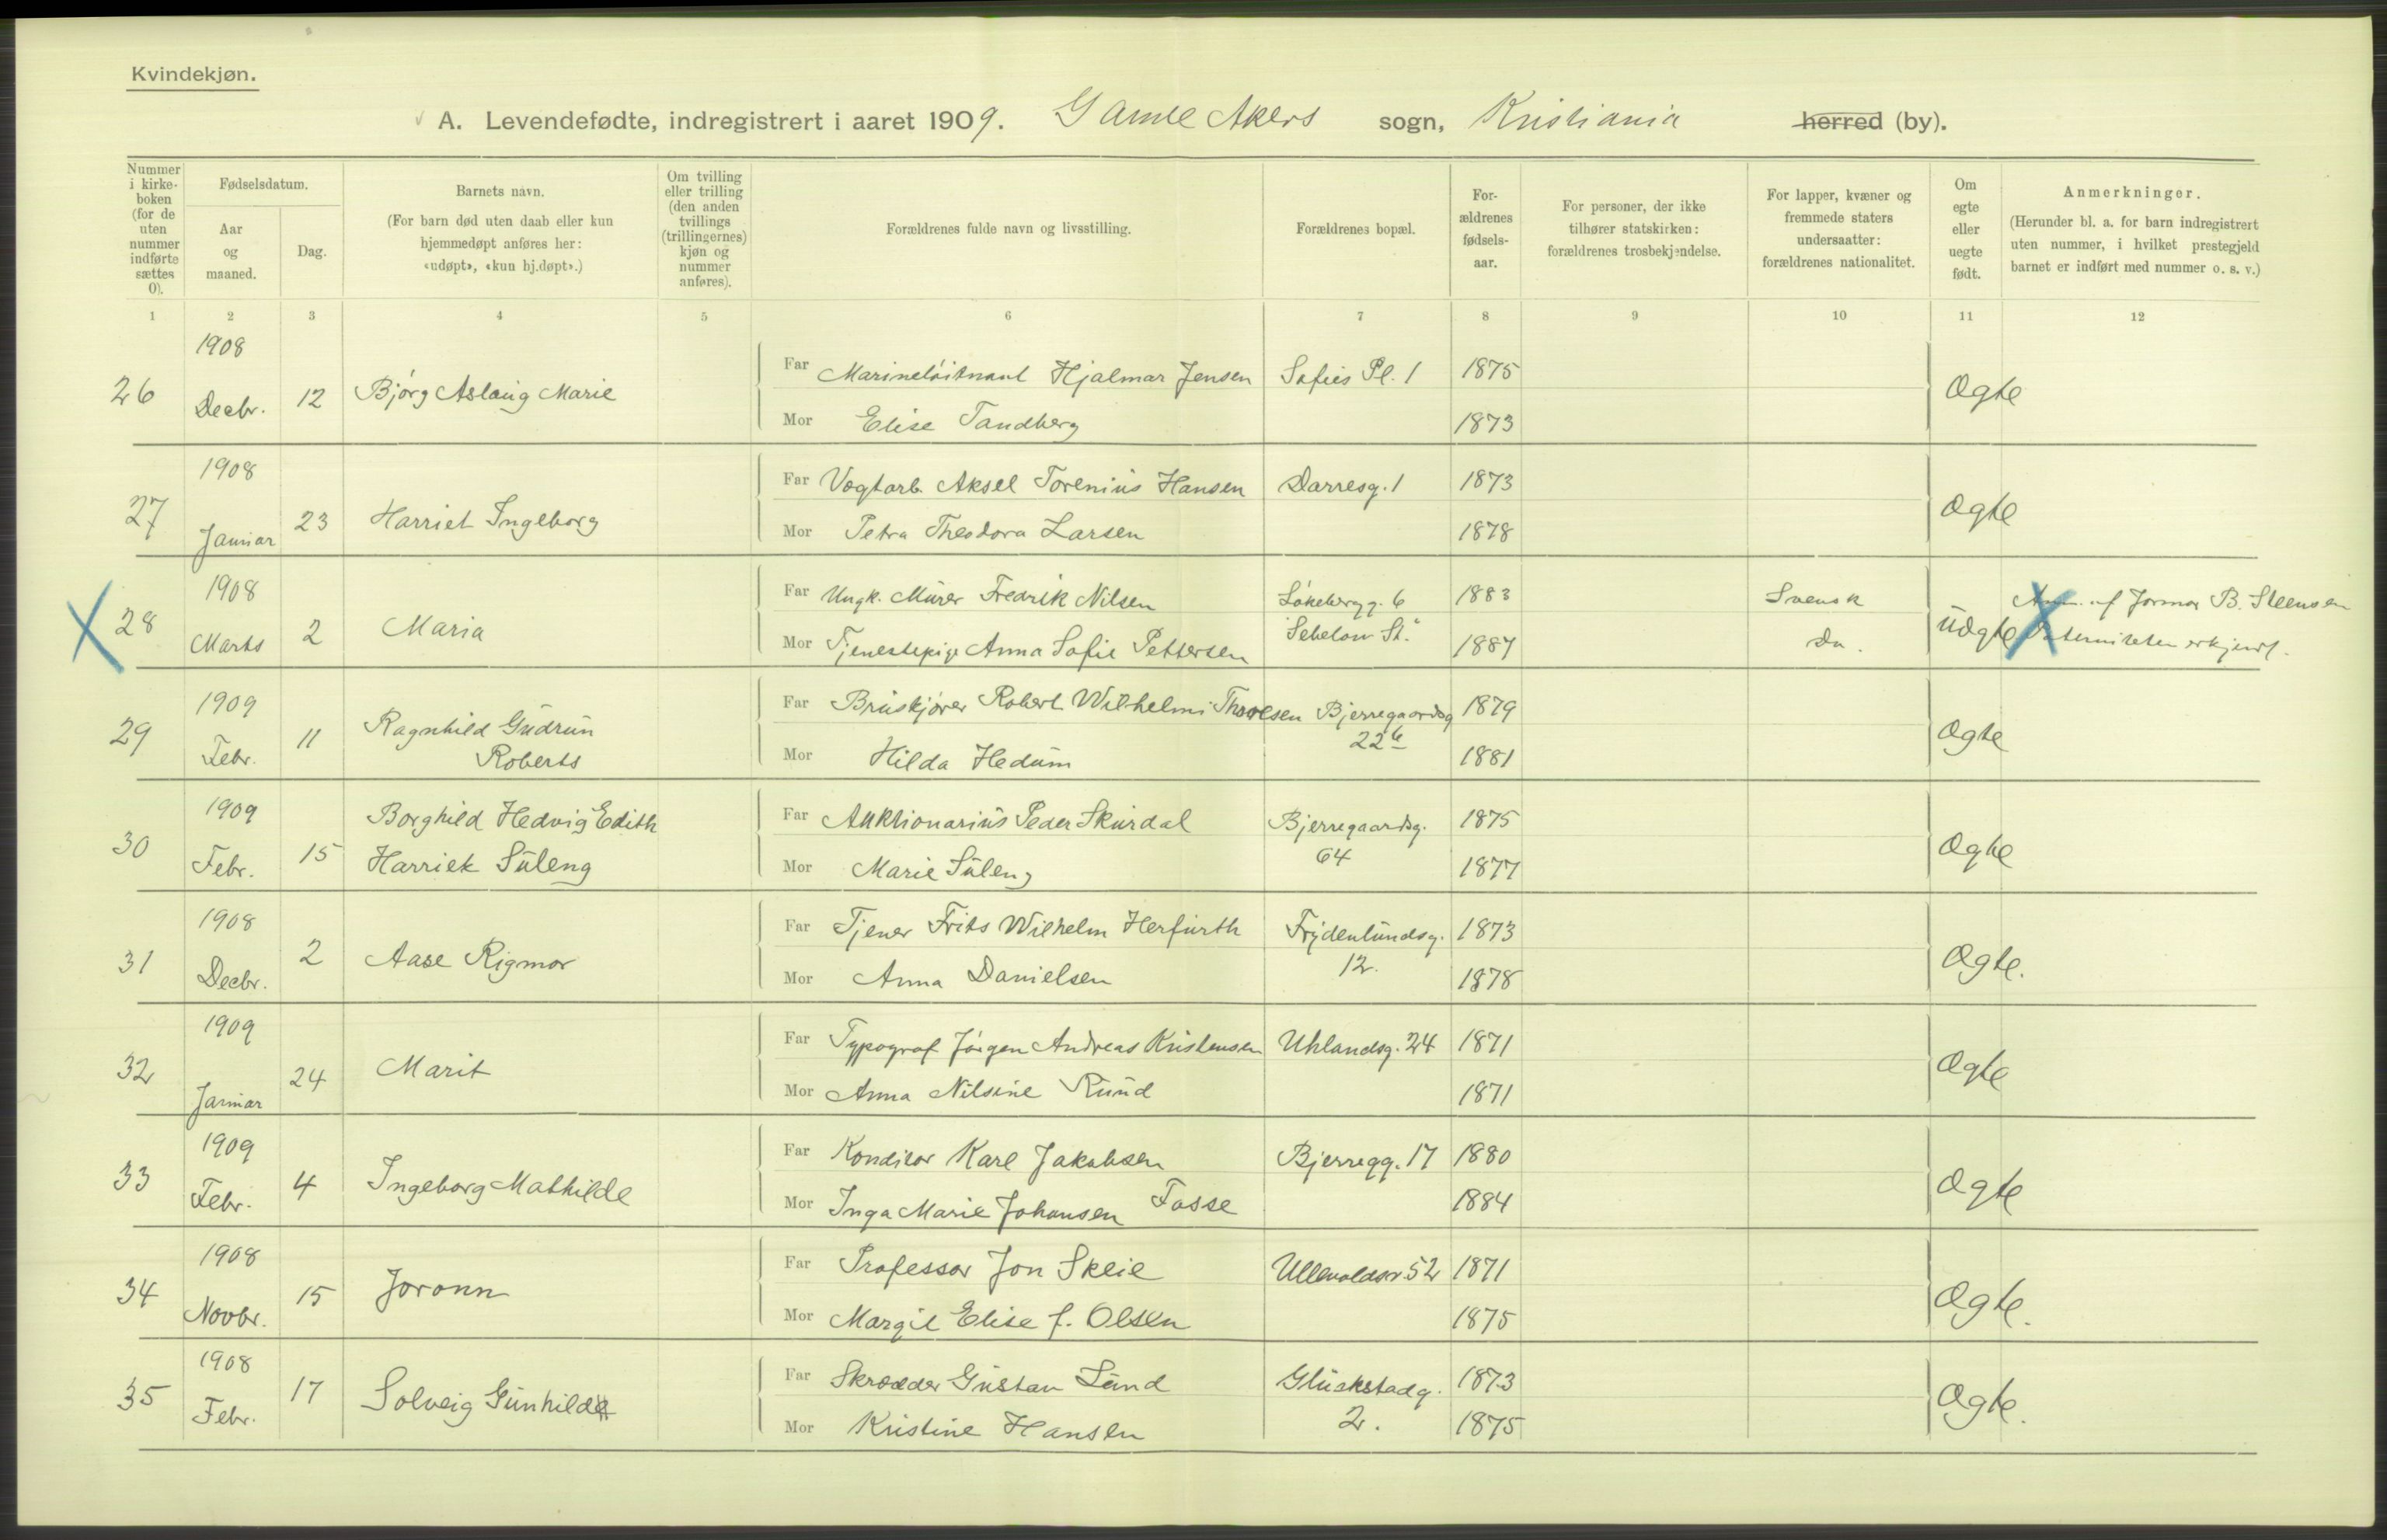 Kvindekjøn.
A. Levendefødte, indregistrert i aaret 1909. Gamle Akers sogn, Kristiania herred (by).
Nummer i kirkeboken (for de uten nummer indførte sættes 0).
Fødselsdatum.
Aar og maaned.
Dag.
Barnets navn.
(For barn død uten daab eller kun hjemmedøpt anføres her: «udøpt», «kun hj.døpt».)
Om tvilling eller trilling (den anden tvillings (trillingernes) kjøn og nummer anføres).
Forældrenes fulde navn og livsstilling.
Forældrenes bopæl.
Forældrenes fødselsaar.
For personer, der ikke tilhører statskirken: forældrenes trosbekjendelse.
For lapper, kvæner og fremmede staters undersaatter: forældrenes nationalitet.
Om egte eller uegte født.
Anmerkninger.
(Herunder bl. a. for barn indregistrert uten nummer, i hvilket prestegjeld barnet er indført med nummer o. s. v.)
1 2 3 4 5 6 7 8 9 10 11 12
1908
26 Decbr. 12 Bjørg Aslaug Marie
Far Marineløitnant Hjalmar Jensen Sofies Pl. 1 1875
Mor Elise Tandberg 1873
Ægte
1908
27 Januar 23 Harriet Ingeborg
Far Vogtarb. Aksel Torenius Hansen Darresg. 1 1873
Mor Petra Theodora Larsen 1878
Ægte
1908
28 Marts 2 Maria
Far Ungk. Murer Fredrik Nilsen Løkebergg. 6 1883 Svensk
Mor Tjenestepige Anna Sofie Pettersen 1887 Do.
Uægte
af Jormor B. Steensen
Paterniteten erkjent.
1909
29 Febr. 11 Ragnhild Gudrun
Roberts
Far Bruskjører Robert Wilhelm Thoresen Bjerregaardsg 1879
22b
Mor Hilda Hedum 1881
Ægte
1909
30 Febr. 15 Borghild Hedvig Edith
Harriet Suleng
Far Auktionarius Peder Skurdal Bjerregaardsg. 1875
64
Mor Marie Suleng 1877
Ægte
1908
31 Decbr. 2 Aase Rigmor
Far Tjener Frits Wilhelm Herfurth Frydenlundsg. 1873
12.
Mor Anna Danielsen 1878
Ægte.
1909
32 Januar 24 Marit
Far Typograf Jørgen Andreas Kristensen Uhlandsg. 24 1871
Mor Anna Nilsine Rund 1871
Ægte
1909
33 Febr. 4 Ingeborg Mathilde
Far Konditor Karl Jakobsen Bjerregg. 17 1880
Mor Inga Marie Johansen Fosse 1884
Ægte
1908
34 Novbr. 15 Joronn
Far Professor Jon Skeie Ullevoldsv. 52 1871
Mor Margit Elise f. Olsen 1875
Ægte.
1908
35 Febr. 17 Solveig Gunhild
Far Skrædder Gustav Lund Gluckstadg. 1873
2.
Mor Kristine Hansen 1875
Ægte.